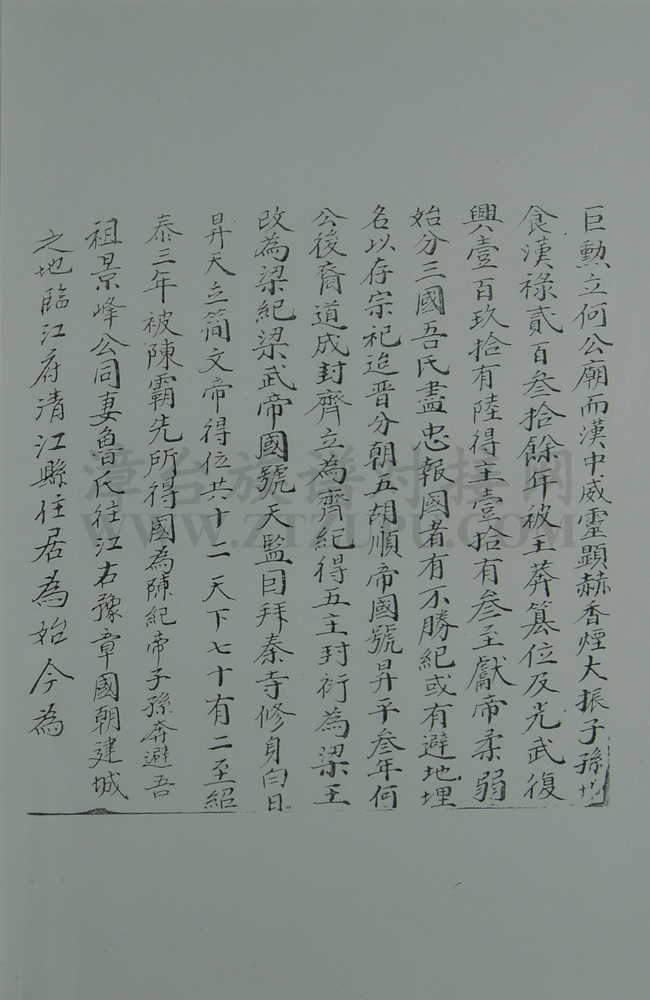 巨勲立何公廟而漢中威靈顯赫香煙大振子孫均
食漢祿貳百叁拾餘年被王莽篡位及光武復
興壹百玖拾有陸得主壹拾有叁至獻帝柔弱
始分三國吾氏盡忠報國者有不勝紀或有避地埋
名以存宗祀迨晋分朝五胡順帝國號昇平叁年何
公後裔道成封齊立為齊紀得五主封衍為梁王
改為梁紀梁武帝國號天監目拜秦寺修身白日
昇天立简文帝得位共十二天下七十有二至紹
泰三年被陳霸先所得國為陳紀帝子孫奔避吾
祖景峰公同妻魯氏往江右豫章國朝建城
之地臨江府清江縣住居為始今為
漳台族谱对接网
WWW.ZTZUPU.COM